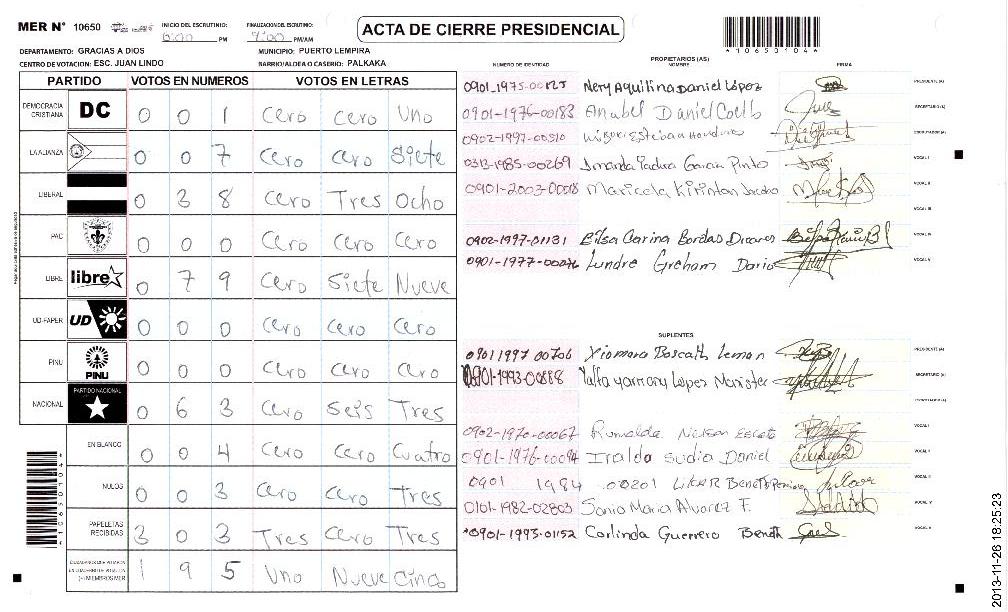 MER N° 10650 INICIO DEL ESCRUTINIO: PM FINALIZACION DEL ESCRUTINIO: 7:00 PM/AM
ACTA DE CIERRE PRESIDENCIAL
*10650104*
DEPARTAMENTO: GRACIAS A DIOS MUNICIPIO: PUERTO LEMPIRA
CENTRO DE VOTACION: ESC. JUAN LINDO BARRIO/ALDEA O CASERIO: PALKAKA
PARTIDO VOTOS EN NUMEROS VOTOS EN LETRAS
DEMOCRACIA CRISTIANA DC 0 0 1 Cero Cero Uno
LA ALIANZA 0 0 7 Cero Cero Siete
LIBERAL 0 3 8 Cero Tres Ocho
PAC 0 0 0 Cero Cero Cero
LIBRE libre 0 7 9 Cero Siete Nueve
UD-FAPER UD 0 0 0 Cero Cero Cero
PINU PINU 0 0 0 Cero Cero Cero
NACIONAL PARTIDO NACIONAL 0 6 3 Cero Seis Tres
EN BLANCO 0 0 4 Cero Cero Cuatro
NULOS 0 0 3 Cero Cero Tres
PAPELETAS RECIBIDAS 3 0 3 Tres Cero Tres
CIUDADANOS QUE VOTARON EN CUADERNO DE VOTACION (+) MIEMBROS MER 1 9 5 Uno Nueve Cinco
PROPIETARIOS (AS)
NUMERO DE IDENTIDAD NOMBRE FIRMA
0901-1975-00125 Nery Aquilina Daniel López PRESIDENTE (A)
0901-1976-00183 Anabel Daniel SECRETARIO (A)
0902-1997-00310 Esteban ESCRUTADOR (A)
0313-1985-00269 García Pinto VOCAL I
0901-2003-00018 Maricela VOCAL II
VOCAL III
0902-1997-01131 Carina Bordas VOCAL IV
0901-1977-00076 Lundre Greham Dario VOCAL V
SUPLENTES
0901 1997 00706 Xiomara Boscath Leman PRESIDENTE (A)
0901-1993-00888 Lopez SECRETARIO (A)
ESCRUTADOR (A)
0902-1970-00067 Rumalda Nelson VOCAL I
0901-1976-00094 Iralda Sudia Daniel VOCAL II
0901 1984 00201 VOCAL III
0101-1982-02803 Sonia Maria Alvarez F. VOCAL IV
0901-1993-01152 Carlinda Guerrero VOCAL V
*10650104*
2013-11-26 18:25:23